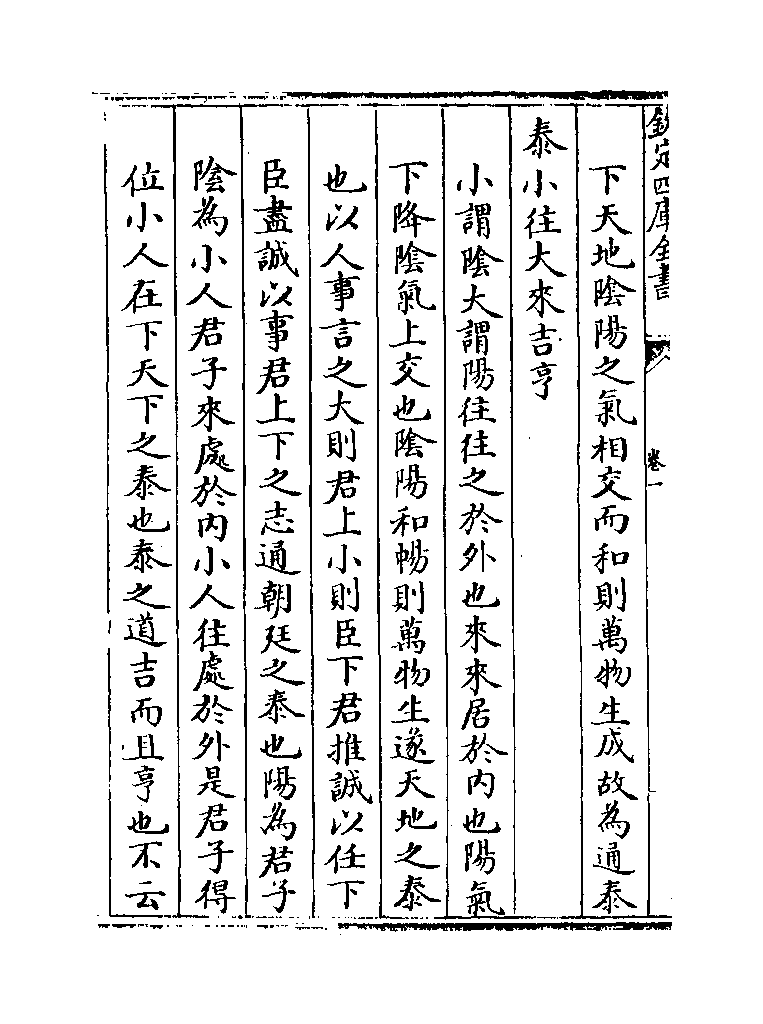 欽定四庫全書
卷一
下天地陰陽之氣相交而和則萬物生成故為通泰
泰小往大來吉亨
小謂陰大謂陽往往之於外也來來居於内也陽氣
下降陰氣上交也陰陽和暢則萬物生遂天地之泰
也以人事言之大則君上小則臣下君推誠以任下
臣盡誠以事君上下之志通朝廷之泰也陽為君子
陰為小人君子來處於内小人往處於外是君子得
位小人在下天下之泰也泰之道吉而且亨也不云